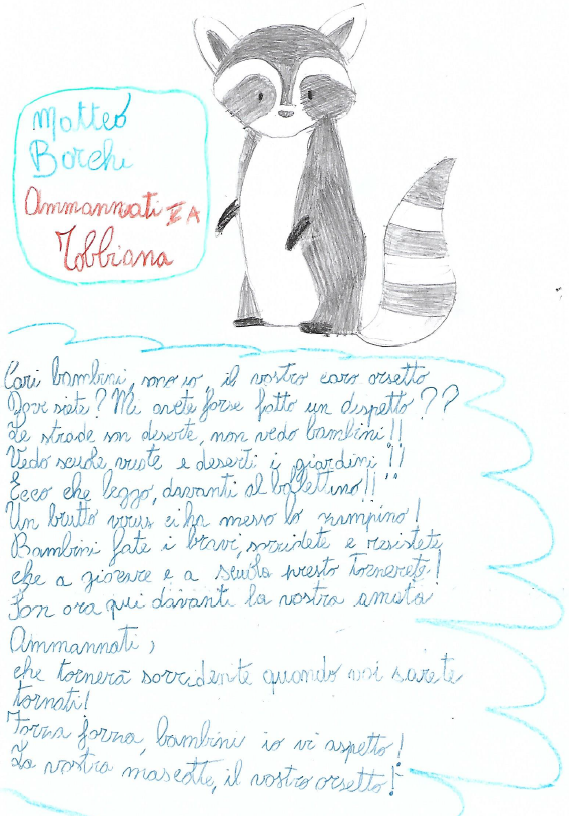 Matteo
Borchi
Ammannati II A
Tobbiana
Cari bambini, sono io, il vostro caro orsetto
Dove siete? Mi avete forse fatto un dispetto??
Le strade son deserte, non vedo bambini!!
Vedo scuole vuote e deserti i giardini!!
Ecco che leggo, davanti al bollettino!!
Un brutto virus ci ha messo lo zampino!
Bambini fate i bravi, sorridete e resistete,
che a giocare e a scuola presto tornerete!
Son ora qui davanti la vostra amata
Ammannati,
che tornerà sorridente quando voi sarete
tornati!
Forza forza, bambini io vi aspetto!
La vostra mascotte, il vostro orsetto!